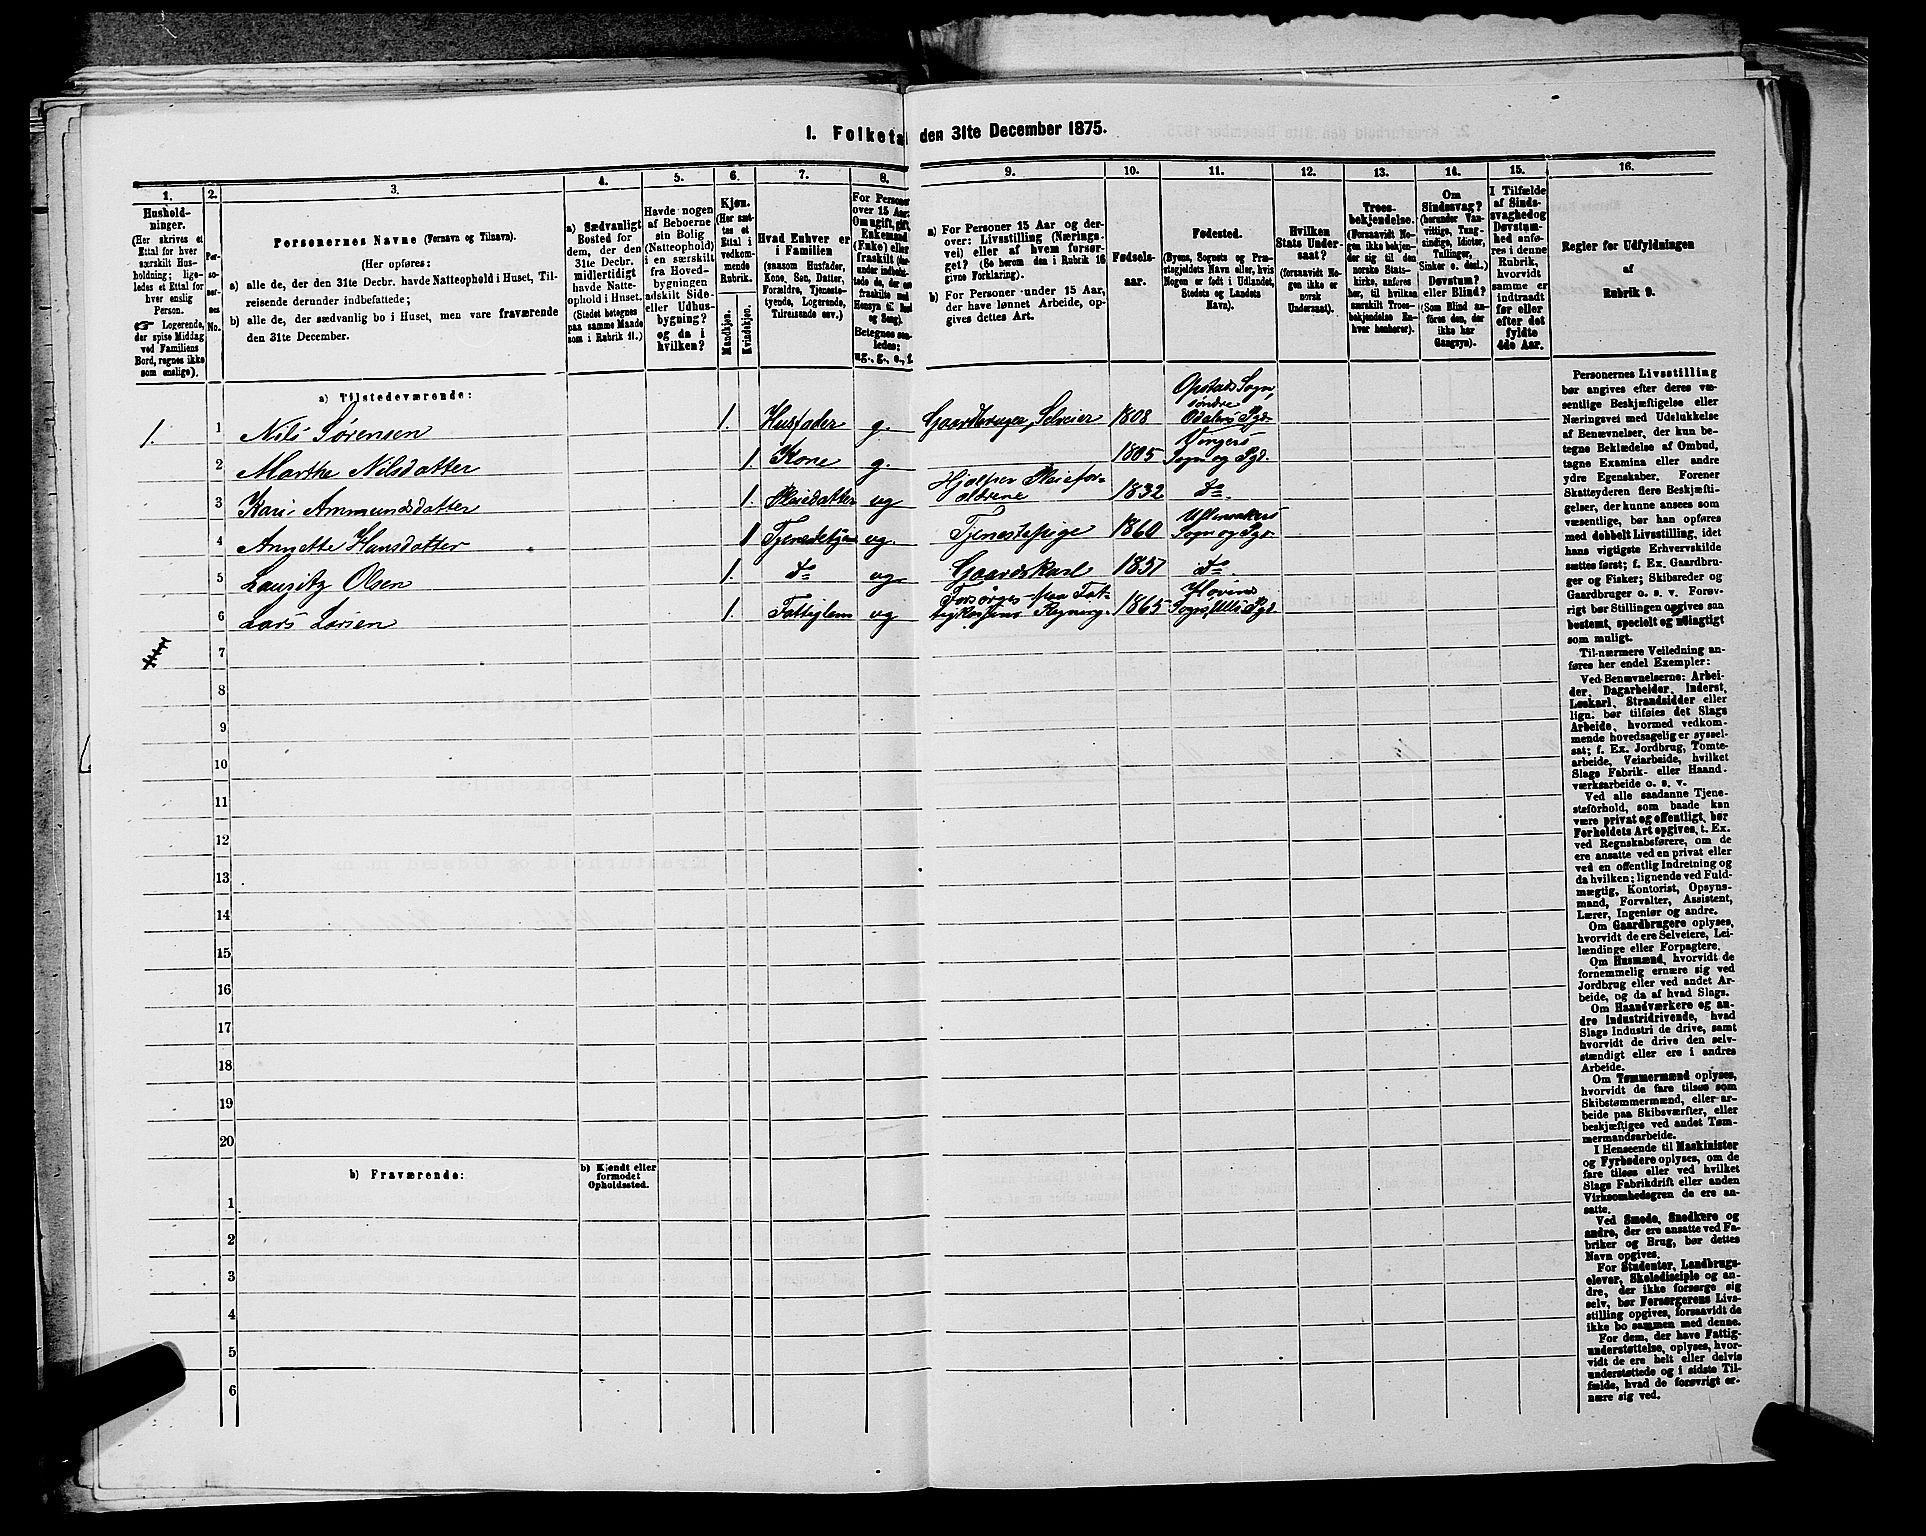 1. Folketa den 31te December 1875.
1.
Hushold-
ninger.
(Her skrives et
Ettal for hver
særskilt Hus-
holdning; lige-
ledes et Ettal for
hver enslig
Person.
☞ Logerende,
der spise Middag
ved Familiens
Bord, regnes ikke
som enslige).
2.
Per-
so-
ner-
nes
No.
3.
Personernes Navne (Fornavn og Tilnavn).
(Her opføres:
a) alle de, der den 31te Decbr. havde Natteophold i Huset, Til-
reisende derunder indbefattede;
b) alle de, der sædvanlig bo i Huset, men vare fraværende
den 31te December.
4.
a) Sædvanligt
Bosted for
dem, der den
31te Decbr.
midlertidigt
havde Natte-
ophold i Huset.
(Stedet betegnes
paa samme Maade
som i Rubrik 11.)
5.
Havde nogen
af Beboerne
sin Bolig
(Natteophold)
i en særskilt
fra Hoved-
bygningen
adskilt Side-
eller Udhus-
bygning?
og da i
hvilken?
6.
Kjøn.
(Her sæt-
tes et
Ettal i
vedkom-
mende
Rubrik.
Mandkjøn.
Kvindekjøn.
7.
Hvad Enhver er
i Familien
(saasom Husfader,
Kone, Søn, Datter,
Forældre, Tjeneste-
tyende, Logerende,
Tilreisende osv.)
8.
For Personer
over 15 Aar:
Om ugift, gift,
Enkemand
(Enke) eller
fraskilt
Betegnes saa-
ledes:
ug., g., e., f.
9.
a) For Personer 15 Aar og der-
over: Livsstilling (Nærings-
vei) eller af hvem forsør-
get? (Se herom den i Rubrik 16
givne Forklaring).
b) For Personer under 15 Aar,
der have lønnet Arbeide, op-
gives dettes Art.
10.
Fødsels-
aar.
11.
Fødested.
(Byens, Sognets og Præ-
stegjeldets Navn eller, hvis
Nogen er født i Udlandet,
Stedets og Landets
Navn).
12.
Hvilken
Stats Under-
saat?
(forsaavidt No-
gen ikke er
norsk
Undersaat).
13.
Troes-
bekjendelse.
(Forsaavidt No-
gen ikke bekjen-
der sig til den
norske Stats-
kirke, anføres
her, til hvilken
særskilt Troes-
bekjendelse En-
hver henhører).
14.
Om
Sindssvag?
(herunder Van-
vittige, Tung-
sindige, Idioter,
Tullinger,
Sinker o. desl.)
Døvstum?
eller Blind?
(Som Blind an-
føres den, der
ikke har
Gangsyn).
15.
I Tilfælde
af Sinds-
svaghed og
Døvstum-
hed anfø-
res i denne
Rubrik,
hvorvidt
samme er
indtraadt
før eller
efter det
fyldte
4de Aar.
16.
Regler for Udfyldningen
af
Rubrik 9.
a) Tilstedeværende:
1. 1 Nils Sørensen 1. Husfader g. Gaardbruger, Selveier 1808 Opstads Sogn, søndre Odalens Pgd.
2 Marthe Nilsdatter 1. Kone g. 1805 Vingers Sogn og Pgd.
3 Kari Ammundsdatter 1. Pleiedatter ug Hjælper Pleiefor-ældrene 1832 do
4 Annette Hansdatter 1 Tjenestetjen ug. Tjenestepige 1860 Ullensakers Sogn og Pgd.
5 Lauritz Olsen 1. do ug. Gaardskarl 1857 do
6 Lars Larsen 1. Fattiglem ug Forsørges paa Fat-tigkassens Regning 1865 Høvinds Sogn, Ulls Pgd.
7
8
9
10
11
12
13
14
15
16
17
18
19
20
b) Fraværende:
b) Kjendt eller
formodet
Opholdssted.
1
2
3
4
5
6
Personernes Livsstilling
bør angives efter deres væ-
sentlige Beskjæftigelse eller
Næringsvei med Udelukkelse
af Benævnelser, der kun be-
tegne Beklædelse af Ombud,
tagne Examina eller andre
ydre Egenskaber. Forener
Skatteyderen flere Beskjæfti-
gelser, der kunne ansees som
væsentlige, bør han opføres
med dobbelt Livsstilling, idet
hans vigtigste Erhvervskilde
sættes først; f. Ex. Gaardbru-
ger og Fisker; Skibsreder og
Gaardbruger o. s. v. Forøv-
rigt bør Stillingen opgives saa
bestemt, specielt og nøiagtigt
som muligt.
Til nærmere Veiledning an-
føres her endel Exempler:
Ved Benævnelserne: Arbei-
der, Dagarbeider, Inderst,
Løskarl, Strandsidder eller
lign. bør tilføies det Slags
Arbeide, hvormed vedkom-
mende hovedsagelig er syssel-
sat; f. Ex. Jordbrug, Tomte-
arbeide, Veiarbeide, hvilket
Slags Fabrik- eller Haand-
værksarbeide o. s. v.
Ved alle saadanne Tjene-
steforhold, som baade kan
være privat og offentligt, bør
Forholdets Art opgives, t. Ex.
ved Regnskabsførere, om de
ere ansatte ved en privat eller
ved en offentlig Indretning og
da hvilken; lignende ved Fuld-
mægtig, Kontorist, Opsyns-
mand, Forvalter, Assistent,
Lærer, Ingeniør og andre.
Om Gaardbrugere oplyses,
hvorvidt de ere Selveiere, Lei-
lændinge eller Forpagtere.
Om Husmænd, hvorvidt de
fornemmelig ernære sig ved
Jordbrug eller ved andet Ar-
beide, og da af hvad Slags.
Om Haandværkere og an-
dre Industridrivende, hvad
Slags Industri de drive, samt
hvorvidt de drive den selv-
stændigt eller ere i andres
Arbeide.
Om Tømmermænd oplyses,
hvorvidt de fare tilsøs som
Skibstømmermænd, eller ar-
beide paa Skibsværfter, eller
beskjæftiges ved andet Tøm-
mermandsarbeide.
I Henseende til Maskinister
og Fyrbødere oplyses, om de
fare tilsøs eller ved hvilket
Slags Fabrikdrift eller anden
Virksomhedsgren de ere an-
satte.
Ved Smede, Snedkere og
andre, der ere ansatte ved Fa-
briker og Brug, bør dettes
Navn opgives.
For Studenter, Landbrugs-
elever, Skoledisciple og an-
dre, der ikke forsørge sig
selv, bør Forsørgerens Livs-
stilling opgives, forsaavidt de
ikke bo sammen med denne.
For dem, der have Fattig-
understøttelse, oplyses, hvor-
vidt de ere helt eller delvis
understøttede og i sidste Til-
fælde, hvad de forøvrigt er-
nære sig ved.